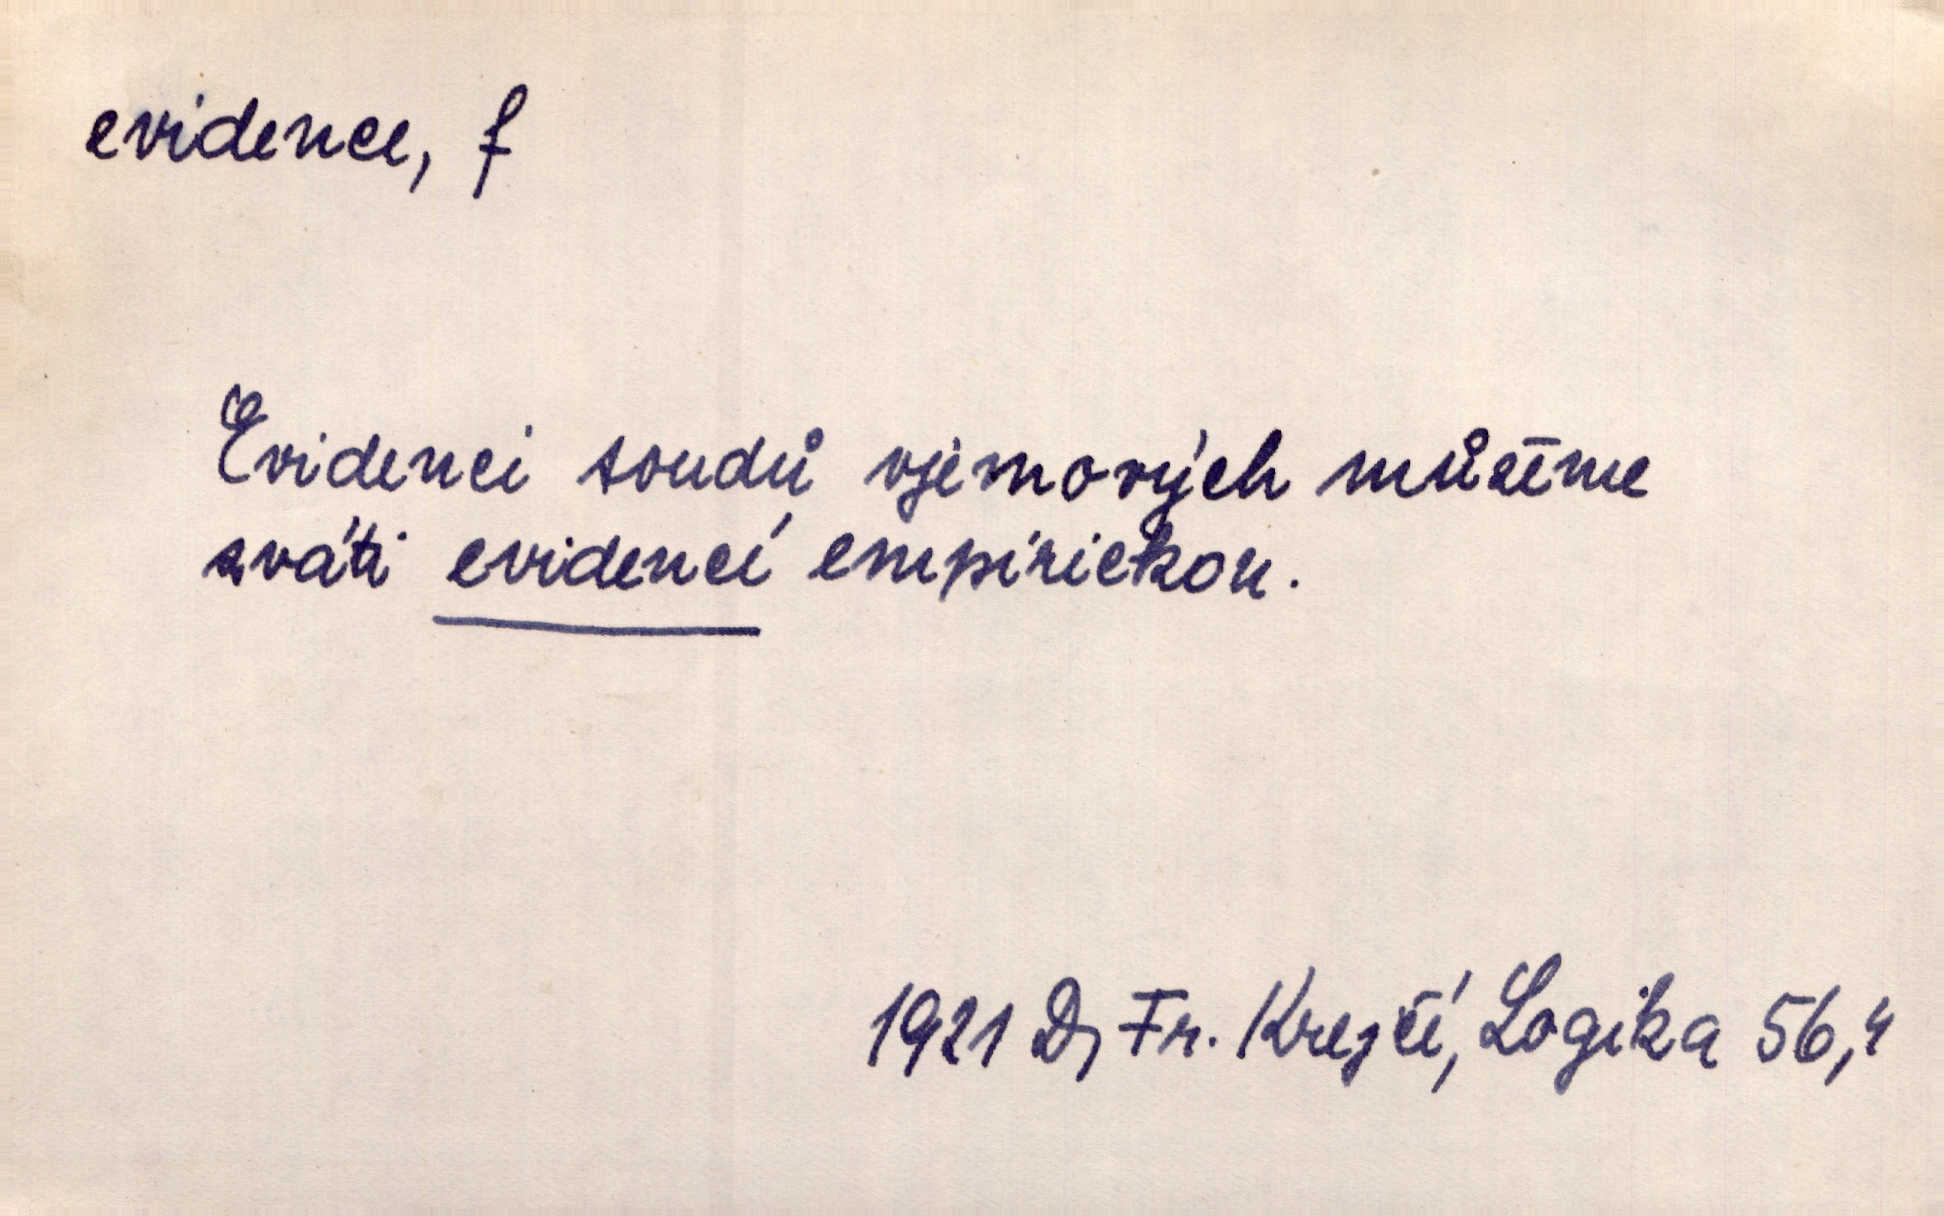 evidence, f
Evidenci soudů vjemových můžeme
zváti evidencí empirickou.
1921 Dr Fr. Krejčí, Logika 56,4